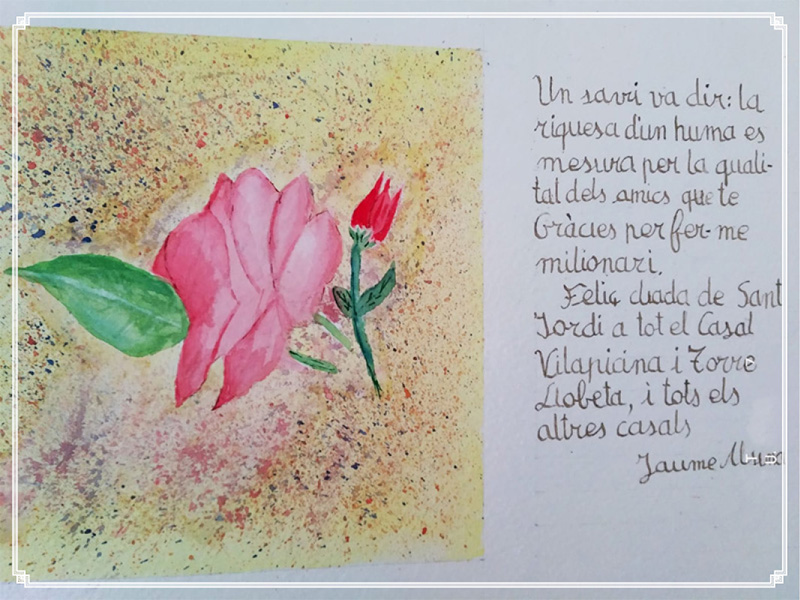 Un savi va dir: la
riquesa d'un huma es
mesura per la quali-
tal dels amics que te
Gràcies per fer-me
milionari.
Feliç diada de Sant
Jordi a tot el Casal
Vilapicina i Torre
Llobeta, i tots els
altres casals
Jaume